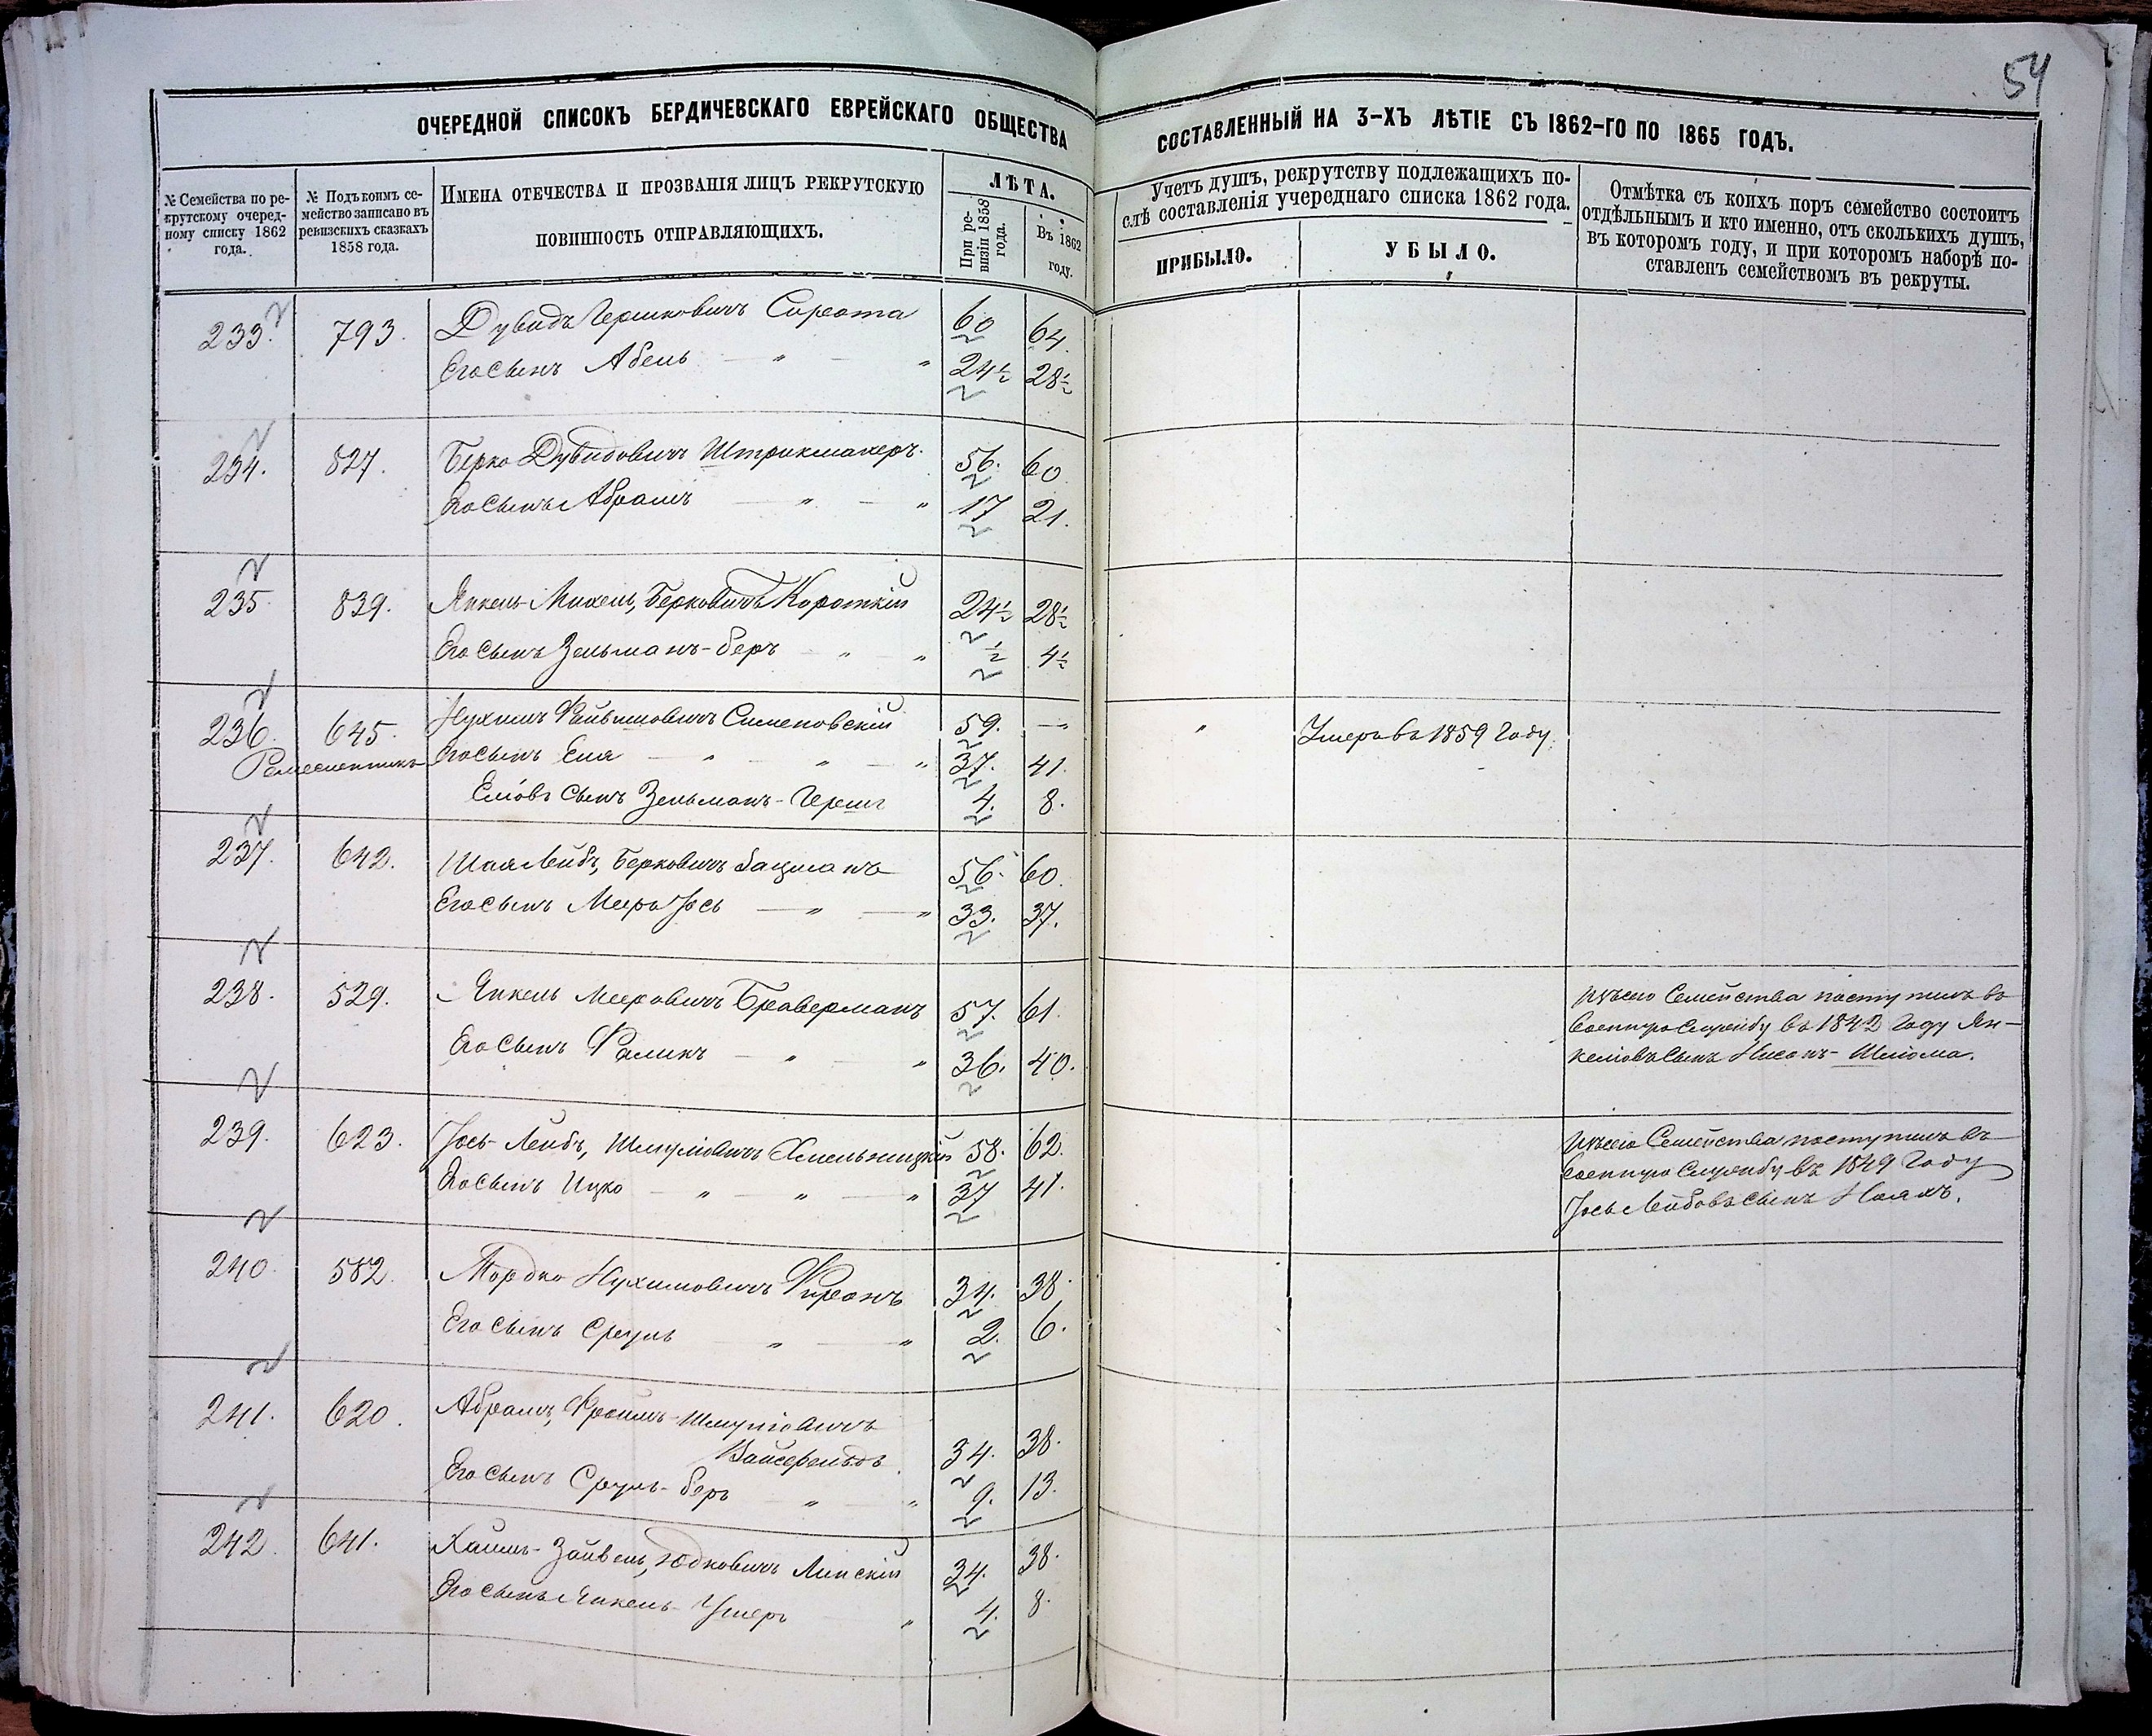 54
ОЧЕРЕДНОЙ СПИСОКЪ БЕРДИЧЕВСКАГО ЕВРЕЙСКАГО ОБЩЕСТВА СОСТАВЛЕННЫЙ НА 3-ХЪ ЛѢТІЕ СЪ 1862-ГО ПО 1865 ГОДЪ.
№ Семейства по ре-
крутскому очеред-
ному списку 1862
года.
№ Подъ коимъ се-
мейство записано въ
ревизскихъ сказкахъ
1858 года.
Имена отечества и прозванія лицъ рекрутскую
повинность отправляющихъ.
ЛѢТА.
При ре-
визіи 1858
года.
Въ 1862
году.
Учетъ душъ, рекрутству подлежащихъ по-
слѣ составленія учереднаго списка 1862 года.
ПРИБЫЛО.
УБЫЛО.
Отмѣтка съ коихъ поръ семейство состоитъ
отдѣльнымъ и кто именно, отъ сколькихъ душъ,
въ которомъ году, и при которомъ наборѣ по-
ставленъ семействомъ въ рекруты.
233. 793. Дувидъ Гершковичъ Сирота 60 64.
Его сынъ Абель — " — " 24½ 28½
234. 827. Берко Дувидовичъ Штрикмахеръ. 56. 60
Его сынъ Абрамъ — " — " 17 21.
235. 839. Янкель-Михель, Берковичъ Короткій 24½ 28½
Его сынъ Зельманъ-Беръ " " ½ 4½
236. 645. Нухимъ Файвишовичъ Симсповскій 59. — " Умеръ въ 1859 году.
Ремесленникъ Его сынъ Еля — " — " — " 37. 41.
Еліовъ сынъ Зельманъ-Гершъ 4. 8.
237. 642. Шая Лейбъ, Берковичъ Бацманъ 56. 60.
Его сынъ Мееръ Іось — " — " 33. 37.
238. 529. Янкель Мееровичъ Браверманъ 57. 61. Изъ сего Семейства поступилъ въ
военную службу въ 1842 году Ян-
Его сынъ Фаликъ — " — " 36. 40. келіовъ сынъ Нисонъ-Шліома.
239. 623. Іось-Лейбъ, Шмуліовичъ Хмельницкій 58. 62. Изъ сего Семейства поступилъ въ
военную службу въ 1849 году
Его сынъ Ицко — " — " — " 37 41. Іось Лейбовъ сынъ Ноахъ.
240. 582. Мордко Нухимовичъ Фиронъ 34. 38.
Его сынъ Сруль — " — " 2. 6.
241. 620. Абрамъ, Фроимъ-Шмуліовичъ
Вайсфельдъ. 34. 38.
Его сынъ Сруль-Беръ " " 9. 13.
242. 641. Хаимъ-Зайвель, Юдковичъ Липскій 34. 38.
Его сынъ Янкель-Ушеръ " 4. 8.